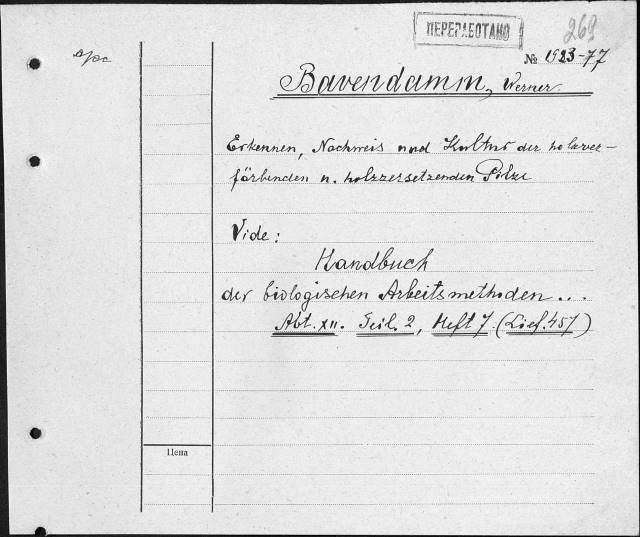 ПЕРЕРАБОТАНО
269
№ 1523-77
Bavendamm, Werner.
Erkennen, Nachweis und Kultur der holzver-
färbenden u. holzzersetzenden Pilze
Vide:
Handbuch
der biologischen Arbeitsmethoden...
Abt. XII. Teil. 2, Heft 7. (Lief. 457)
Цена